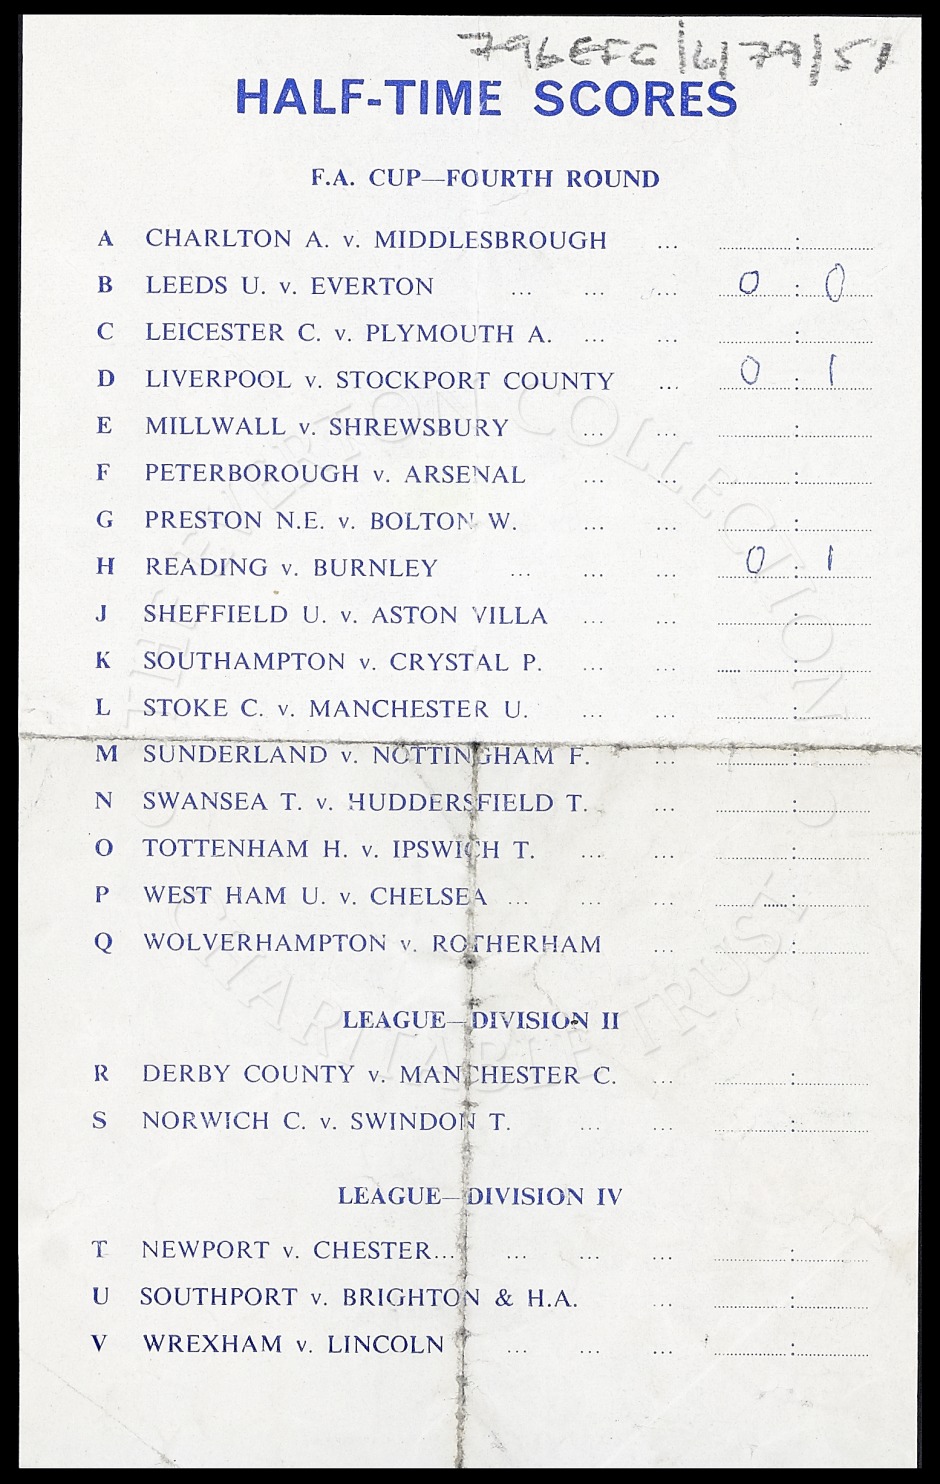 796 EFC/6/79/51
HALF-TIME SCORES
F.A. CUP—FOURTH ROUND
A CHARLTON A. v. MIDDLESBROUGH ... ..........:..........
B LEEDS U. v. EVERTON ... ... ... 0 : 0
C LEICESTER C. v. PLYMOUTH A. ... ... ..........:..........
D LIVERPOOL v. STOCKPORT COUNTY ... 0 : 1
E MILLWALL v. SHREWSBURY ... ... ..........:..........
F PETERBOROUGH v. ARSENAL ... ... ..........:..........
G PRESTON N.E. v. BOLTON W. ... ... ..........:..........
H READING v. BURNLEY ... ... ... 0 : 1
J SHEFFIELD U. v. ASTON VILLA ... ... ..........:..........
K SOUTHAMPTON v. CRYSTAL P. ... ... ..........:..........
L STOKE C. v. MANCHESTER U. ... ... ..........:..........
M SUNDERLAND v. NOTTINGHAM F. ... ..........:..........
N SWANSEA T. v. HUDDERSFIELD T. ... ..........:..........
O TOTTENHAM H. v. IPSWICH T. ... ... ..........:..........
P WEST HAM U. v. CHELSEA ... ... ... ..........:..........
Q WOLVERHAMPTON v. ROTHERHAM ... ..........:..........
LEAGUE—DIVISION II
R DERBY COUNTY v. MANCHESTER C. ... ..........:..........
S NORWICH C. v. SWINDON T. ... ... ..........:..........
LEAGUE—DIVISION IV
T NEWPORT v. CHESTER... ... ... ... ..........:..........
U SOUTHPORT v. BRIGHTON & H.A. ... ..........:..........
V WREXHAM v. LINCOLN ... ... ... ..........:..........
THE EVERTON COLLECTION
CHARITABLE TRUST